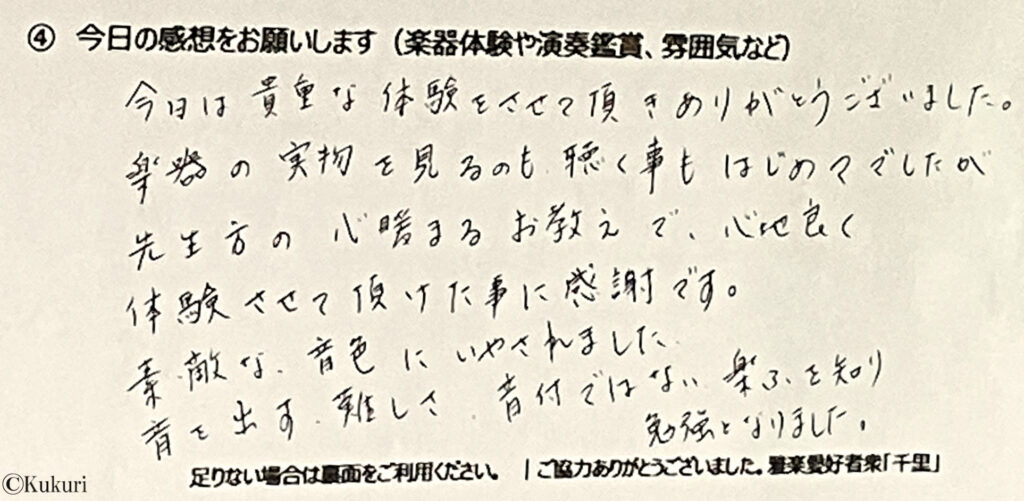 ④ 今日の感想をお願いします(楽器体験や演奏鑑賞、雰囲気など)
今日は貴重な体験をさせて頂きありがとうございました。
楽器の実物を見るのも聴く事もはじめマでしたが
先生方の心暖まるお教えで、心地良く
体験させて頂けた事に感謝です。
素敵な音色にいやされました
音を出す難しさ、音付ではない楽ふを知り
勉強となりました。
足りない場合は裏面をご利用ください。 | ご協力ありがとうございました。雅楽愛好者衆「千里」
©Kukuri